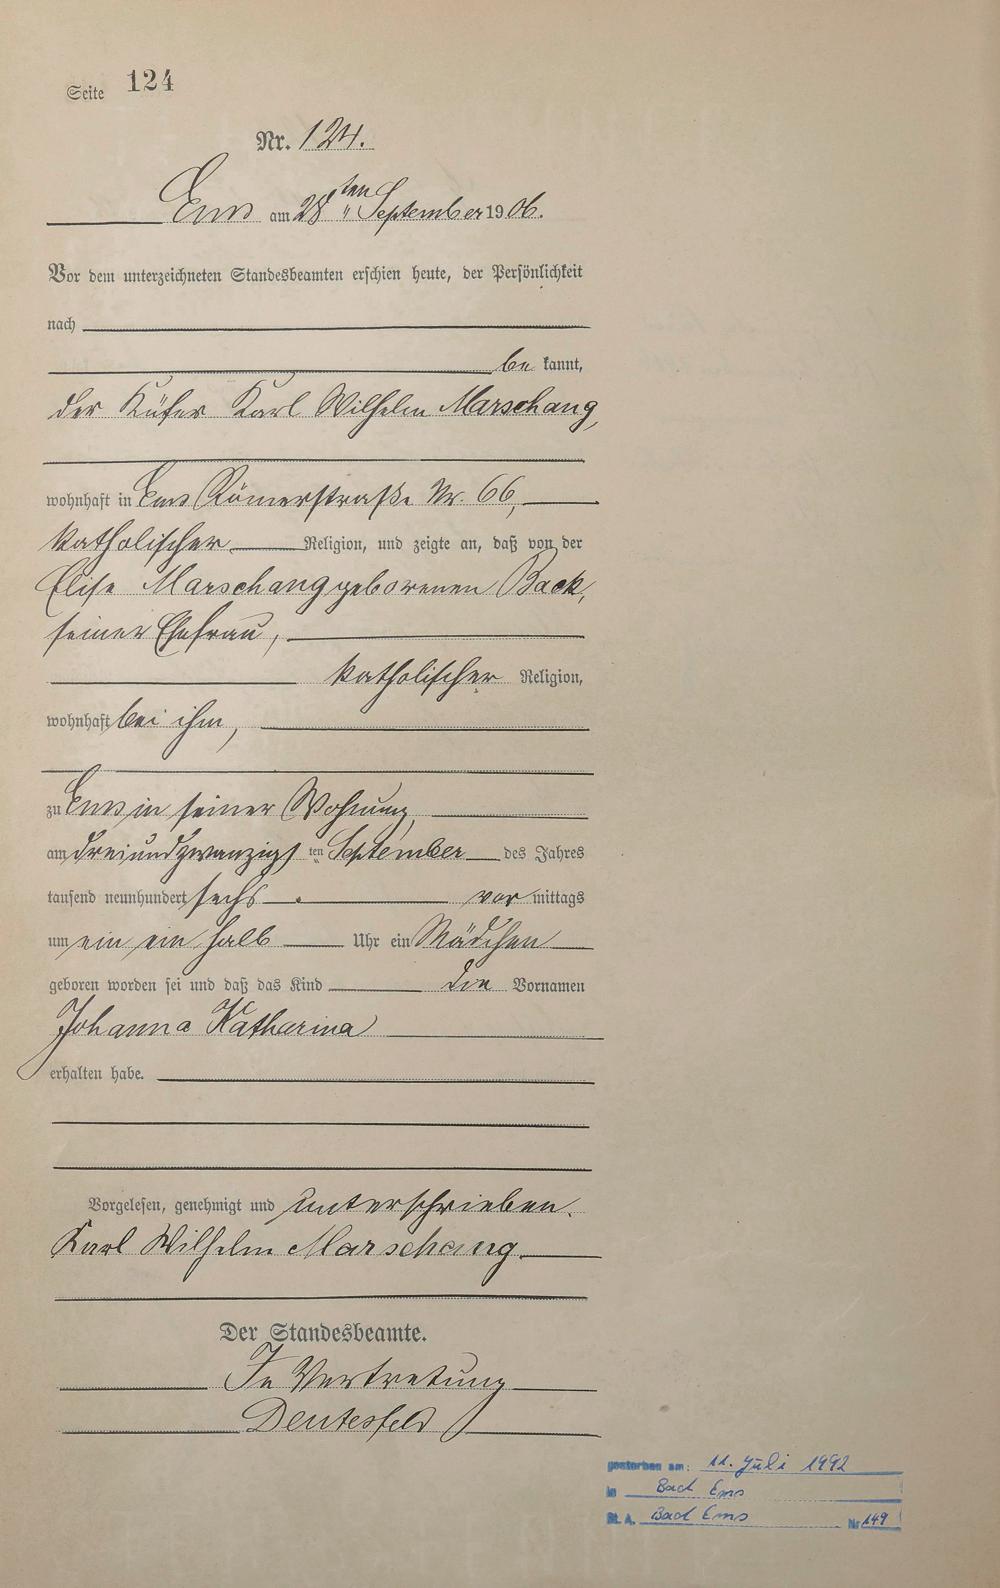 Seite 124
Nr. 124.
Ems am 28ten September 1906.
Vor dem unterzeichneten Standesbeamten erschien heute, der Persönlichkeit
nach
be kannt,
der Küfer Karl Wilhelm Marschang,
wohnhaft in Ems Römerstraße Nr. 66,
katholischer Religion, und zeigte an, daß von der
Elise Marschang geborenen Back,
seiner Ehefrau,
katholischer Religion,
wohnhaft bei ihm,
zu Ems in seiner Wohnung,
am dreiundzwanzigsten September des Jahres
tausend neunhundert sechs vor mittags
um ein ein halb Uhr ein Mädchen
geboren worden sei und daß das Kind die Vornamen
Johanna Katharina
erhalten habe.
Vorgelesen, genehmigt und unterschrieben.
Karl Wilhelm Marschang.
Der Standesbeamte.
In Vertretung
Deutesfeld
gestorben am: 11. Juli 1992
in Bad Ems
St. A. Bad Ems Nr 149